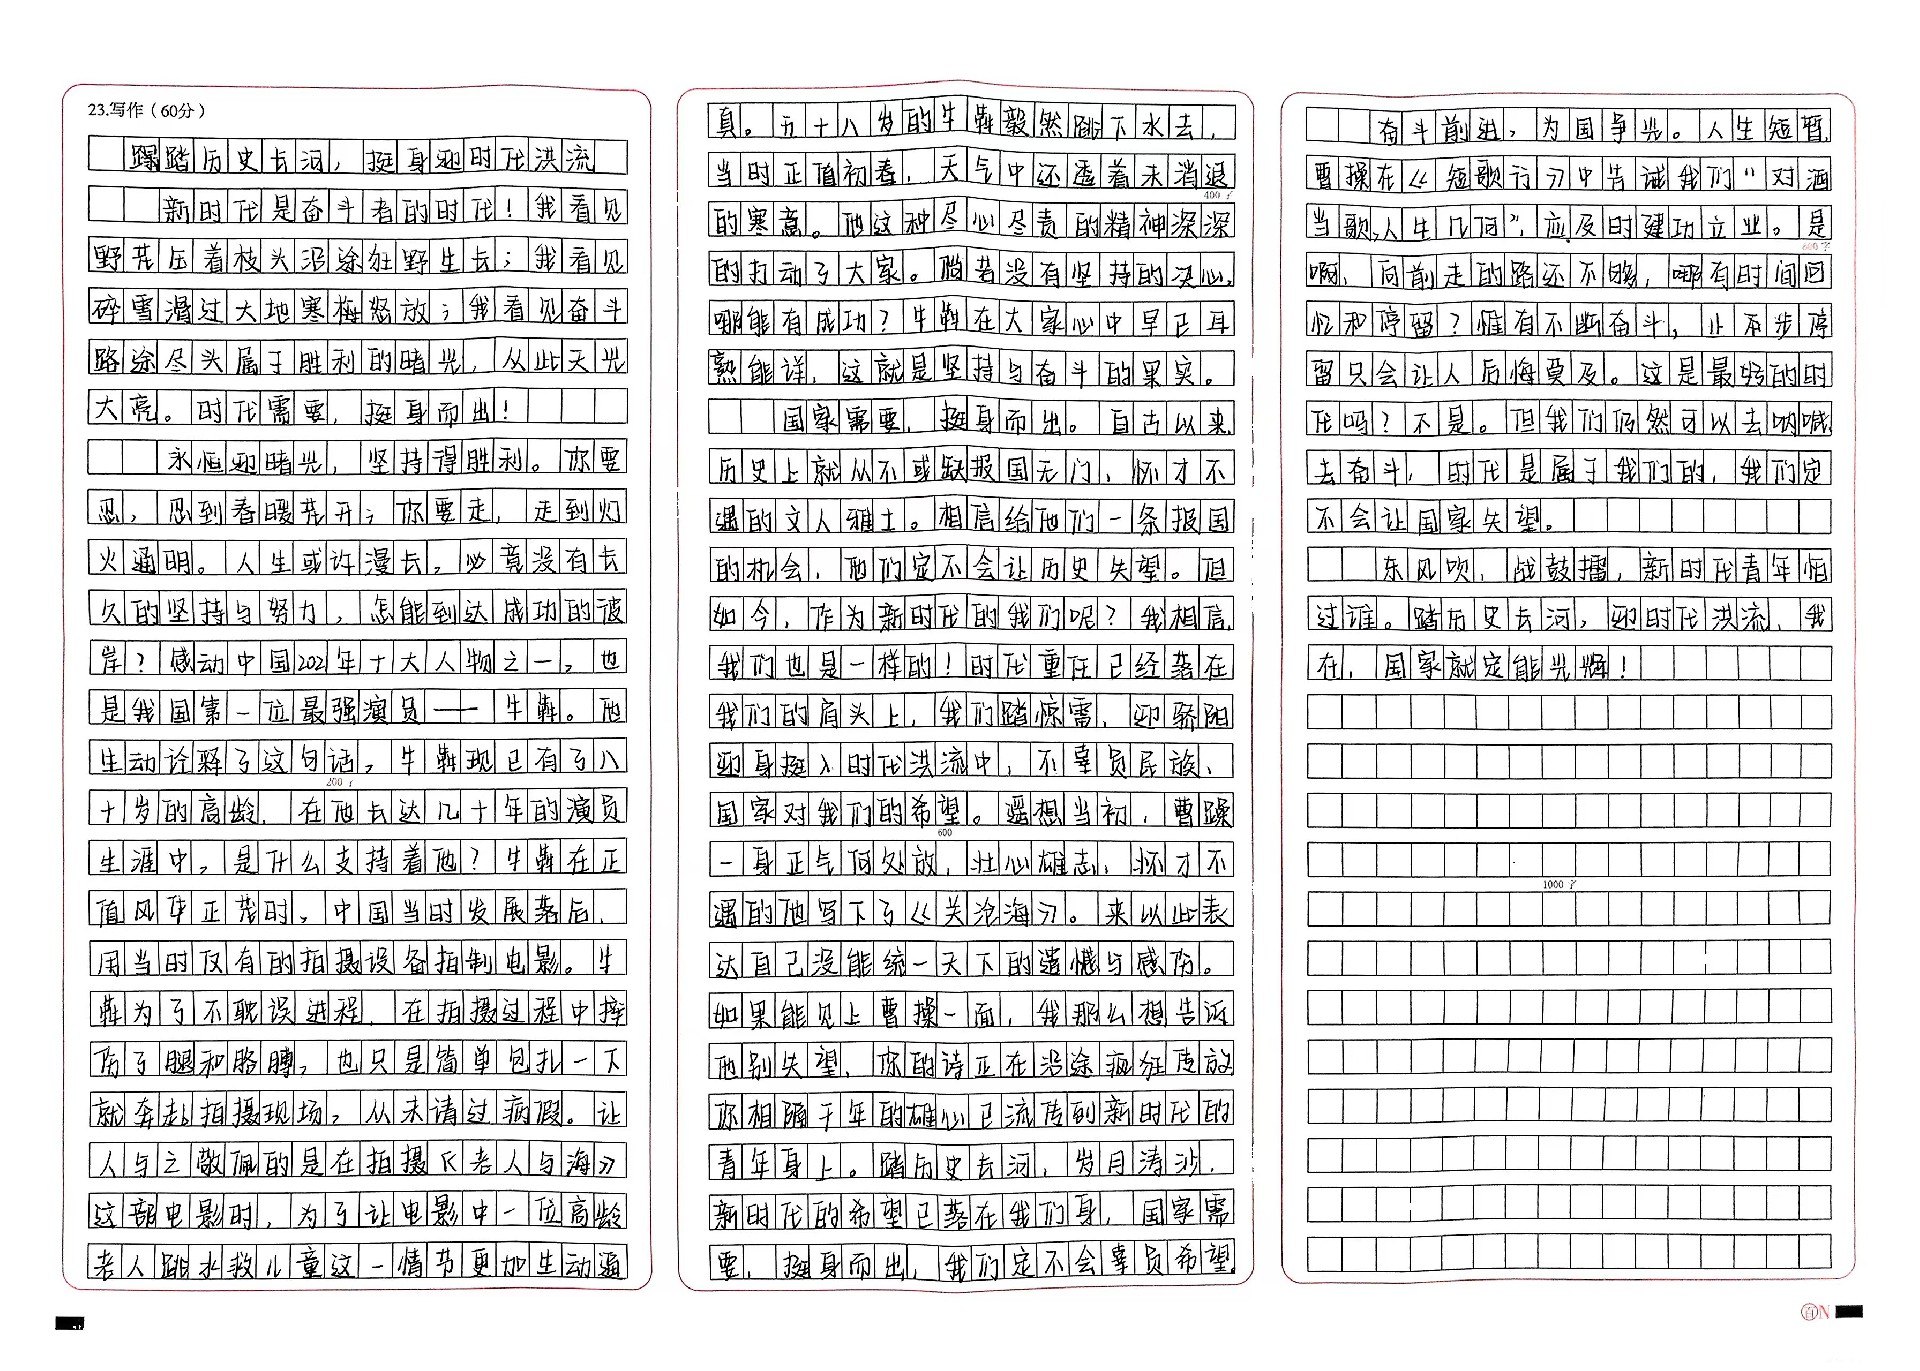 23.写作（60分）
蹋踏历史长河，挺身迎时代洪流
新时代是奋斗者的时代！我看见
野花压着枝头沿途狂野生长；我看见
碎雪漫过大地寒梅怒放；我看见奋斗
路途尽头属于胜利的曙光，从此天光
大亮。时代需要，挺身而出！
永恒迎曙光，坚持得胜利。你要
忍，忍到春暖花开；你要走，走到灯
火通明。人生或许漫长，必竟没有长
久的坚持与努力，怎能到达成功的彼
岸？感动中国2021年十大人物之一，也
是我国第一位最强演员——牛犇。他
生动诠释了这句话，牛犇现已有了八
200字
十岁的高龄，在他长达几十年的演员
生涯中，是什么支持着他？牛犇在正
值风华正茂时，中国当时发展落后，
用当时仅有的拍摄设备拍制电影。牛
犇为了不耽误进程，在拍摄过程中摔
伤了腿和胳膊，也只是简单包扎一下
就奔赴拍摄现场，从未请过病假。让
人与之敬佩的是在拍摄《老人与海》
这部电影时，为了让电影中一位高龄
老人跳水救儿童这一情节更加生动逼
真。五十八岁的牛犇毅然跳下水去，
当时正值初春，天气中还透着未消退
400字
的寒意。他这种尽心尽责的精神深深
的打动了大家。倘若没有坚持的决心，
哪能有成功？牛犇在大家心中早已耳
熟能详，这就是坚持与奋斗的果实。
国家需要，挺身而出。自古以来
历史上就从不或缺报国无门，怀才不
遇的文人雅士。相信给他们一条报国
的机会，他们定不会让历史失望。但
如今，作为新时代的我们呢？我相信，
我们也是一样的！时代重任已经落在
我们的肩头上，我们踏惊雷，迎骄阳
迎身挺入时代洪流中，不辜负民族、
国家对我们的希望。遥想当初，曹躁
600
一身正气何处放，壮心雄志，怀才不
遇的他写下了《关沧海》。来以此表
达自己没能统一天下的遗憾与感伤。
如果能见上曹操一面，我那么想告诉
他别失望，你的诗正在沿途疯狂传放
你相隔千年的雄心已流传到新时代的
青年身上。踏历史长河，岁月涛沙，
新时代的希望已落在我们身，国家需
要，挺身而出，我们定不会辜负希望。
奋斗前进，为国争光。人生短暂，
曹操在《短歌行》中告诫我们“对酒
当歌，人生几何”，应及时建功立业。是
800字
啊，向前走的路还不够，哪有时间回
忆和停留？惟有不断奋斗，止不步停
留只会让人后悔莫及。这是最好的时
代吗？不是。但我们仍然可以去呐喊，
去奋斗，时代是属于我们的，我们定
不会让国家失望。
东风吹，战鼓擂，新时代青年怕
过谁。踏历史长河，迎时代洪流，我
在，国家就定能光辉！
1000字
N